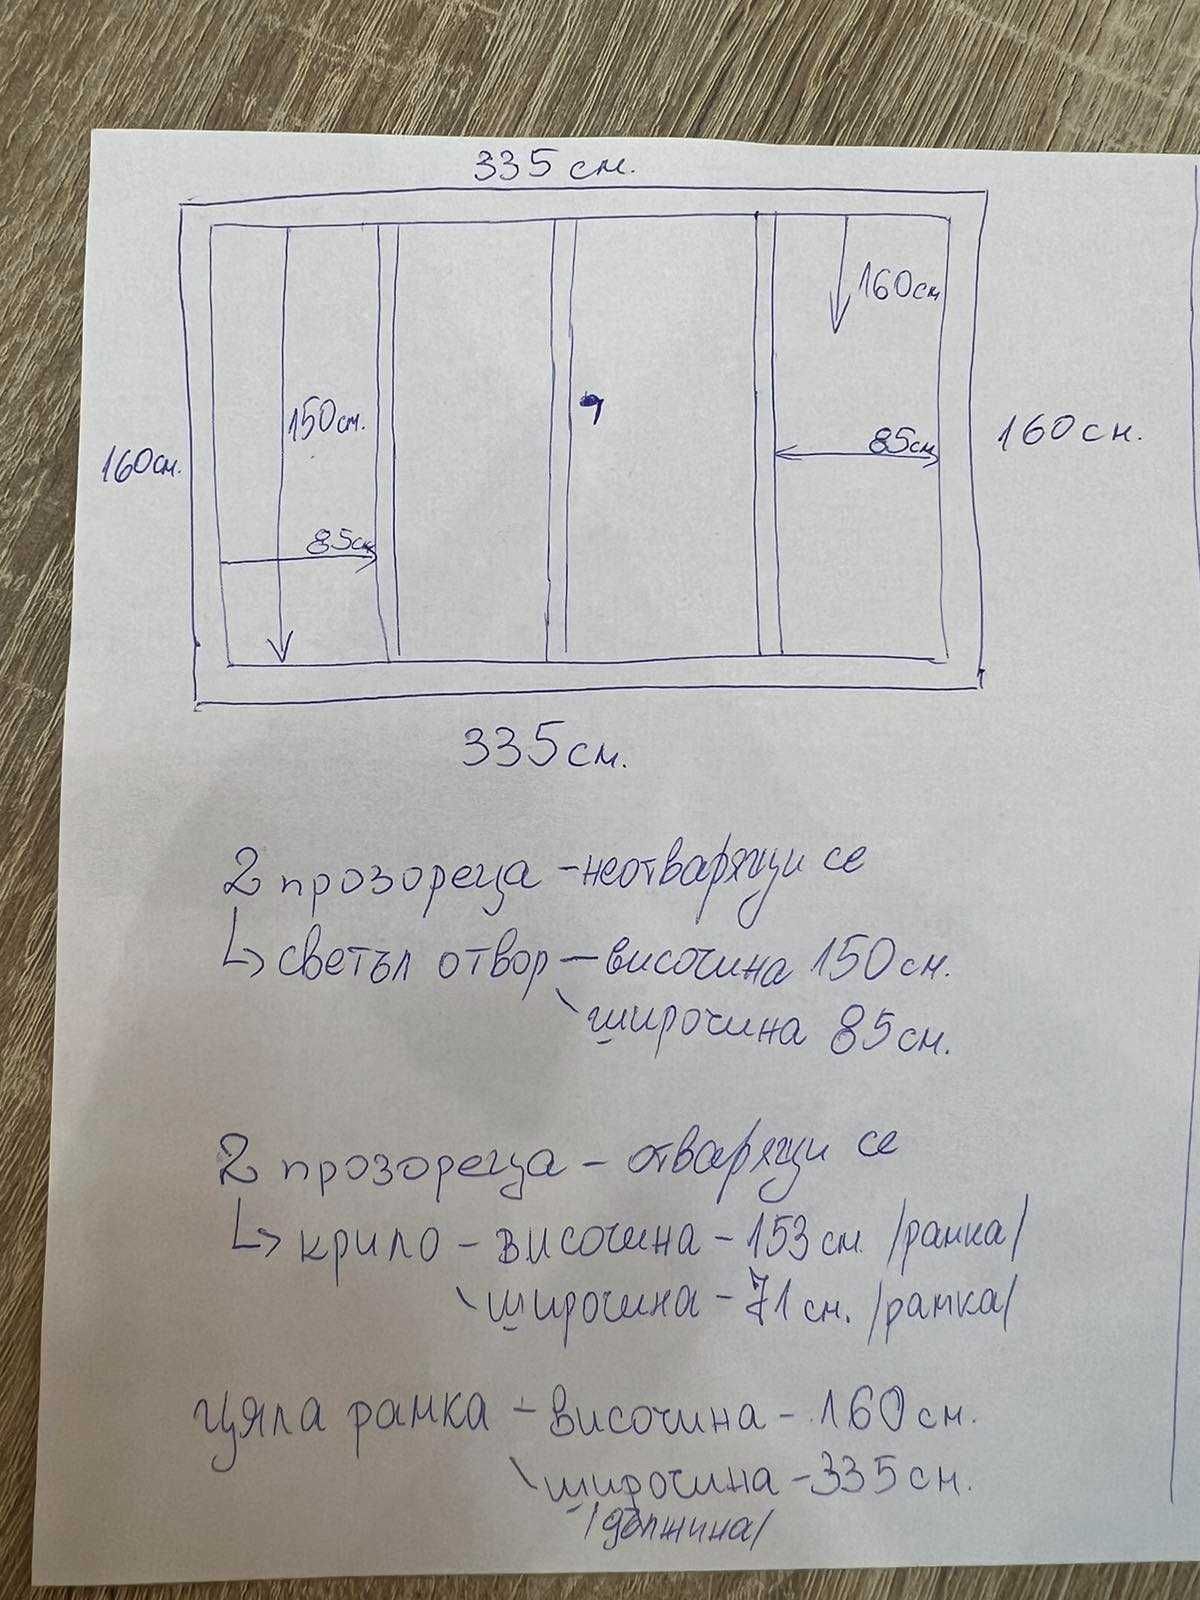 335 см.
160см
150см.
85см
160сн.
160см.
85см
335см.
2 прозореца - неотварящи се
↳ светъл отвор - височина 150см.
широчина 85см.
2 прозореца - отварящи се
↳ крило - височина - 153см. /рамка/
широчина - 71см. /рамка/
цяла рамка - височина - 160см.
широчина - 335см.
/дължина/